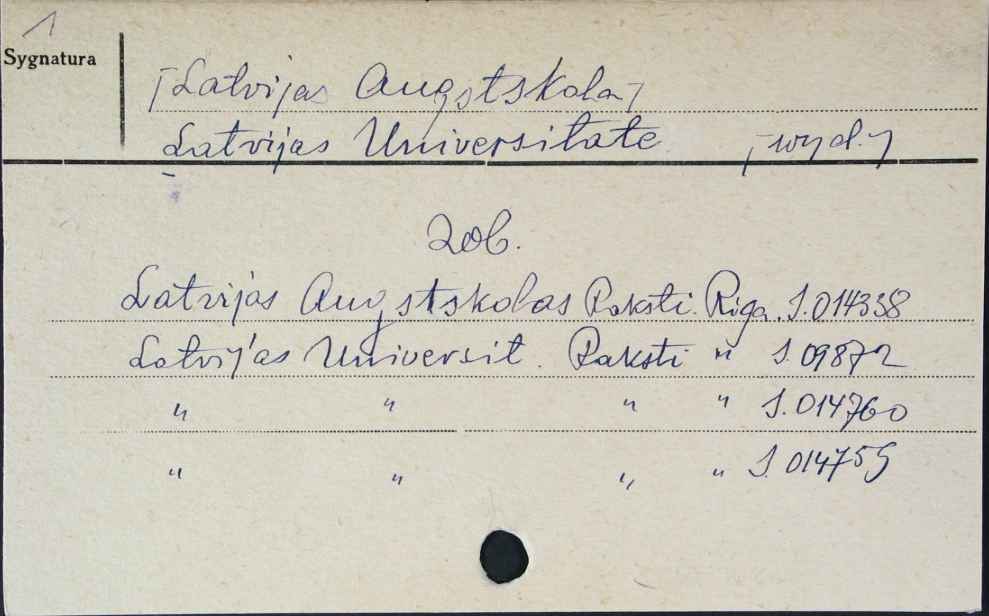 1
Sygnatura
[Latvijas Augstskola]
Latvijas Universitate [wyd.]
zob.
Latvijas Augstskolas Raksti. Riga. J.014338
Latvijas Universit. Raksti " J.09872
" " " " J.014760
" " " " J.014755